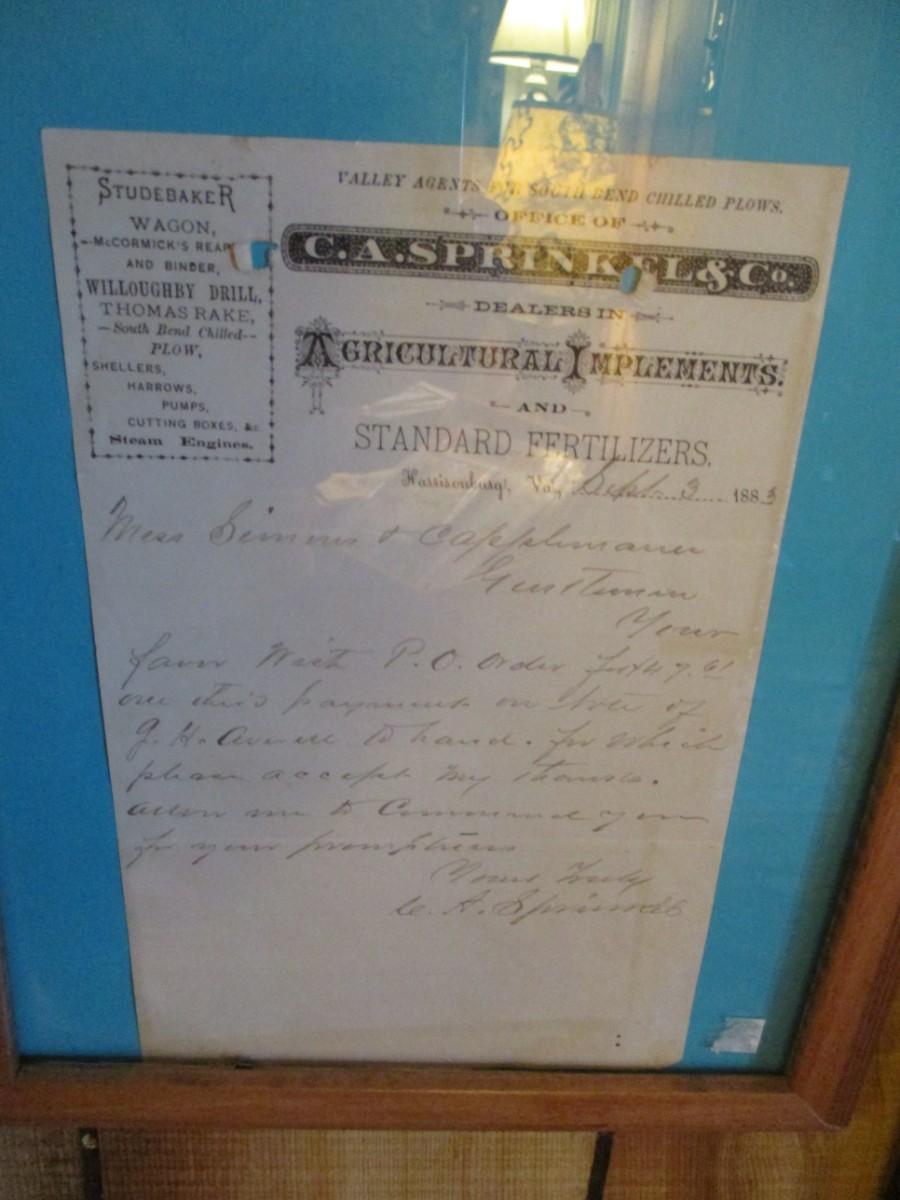 STUDEBAKER
WAGON,
McCORMICK'S REAP
AND BINDER,
WILLOUGHBY DRILL,
THOMAS RAKE,
—South Bend Chilled—
PLOW,
SHELLERS,
HARROWS,
PUMPS,
CUTTING BOXES, &c.
Steam Engines.
VALLEY AGENTS FOR SOUTH BEND CHILLED PLOWS.
OFFICE OF
C.A. SPRINKEL & Co.
DEALERS IN
AGRICULTURAL IMPLEMENTS.
AND
STANDARD FERTILIZERS.
Harrisonburg, Va., Sept. 3 1883
Mess &
Gentlemen
Your
favor With P.O. Order for
payment on Note of
to hand. for which
please accept my thanks.
allow me to Commend you
for your promptness
Yours Truly
C. A. Sprinkel